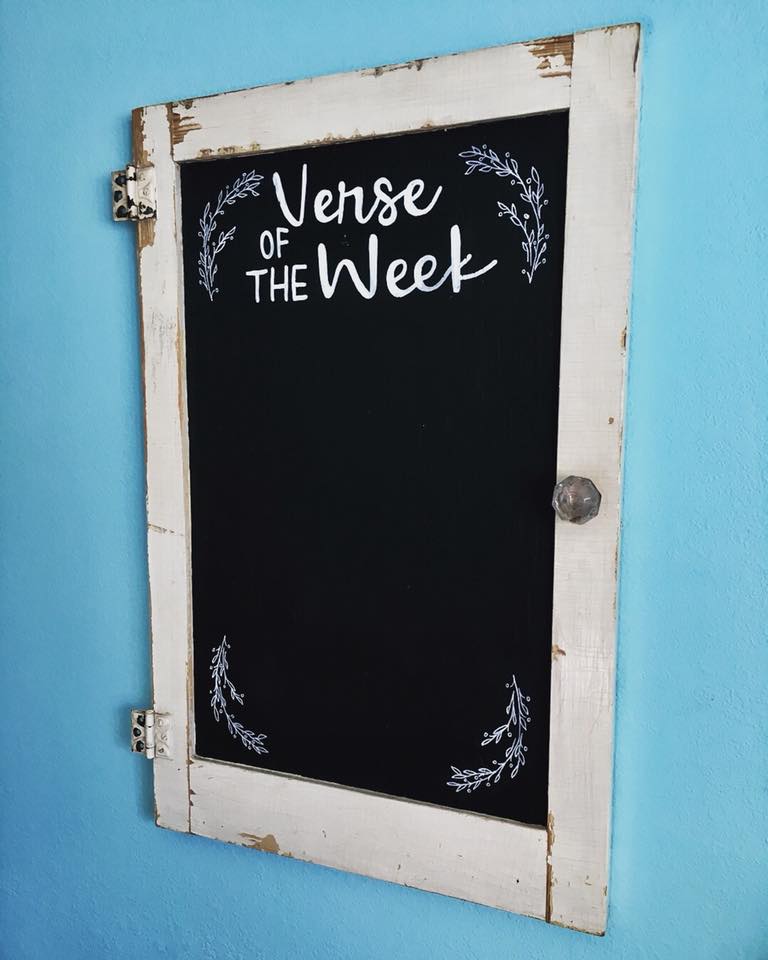 Verse
OF
THE Week